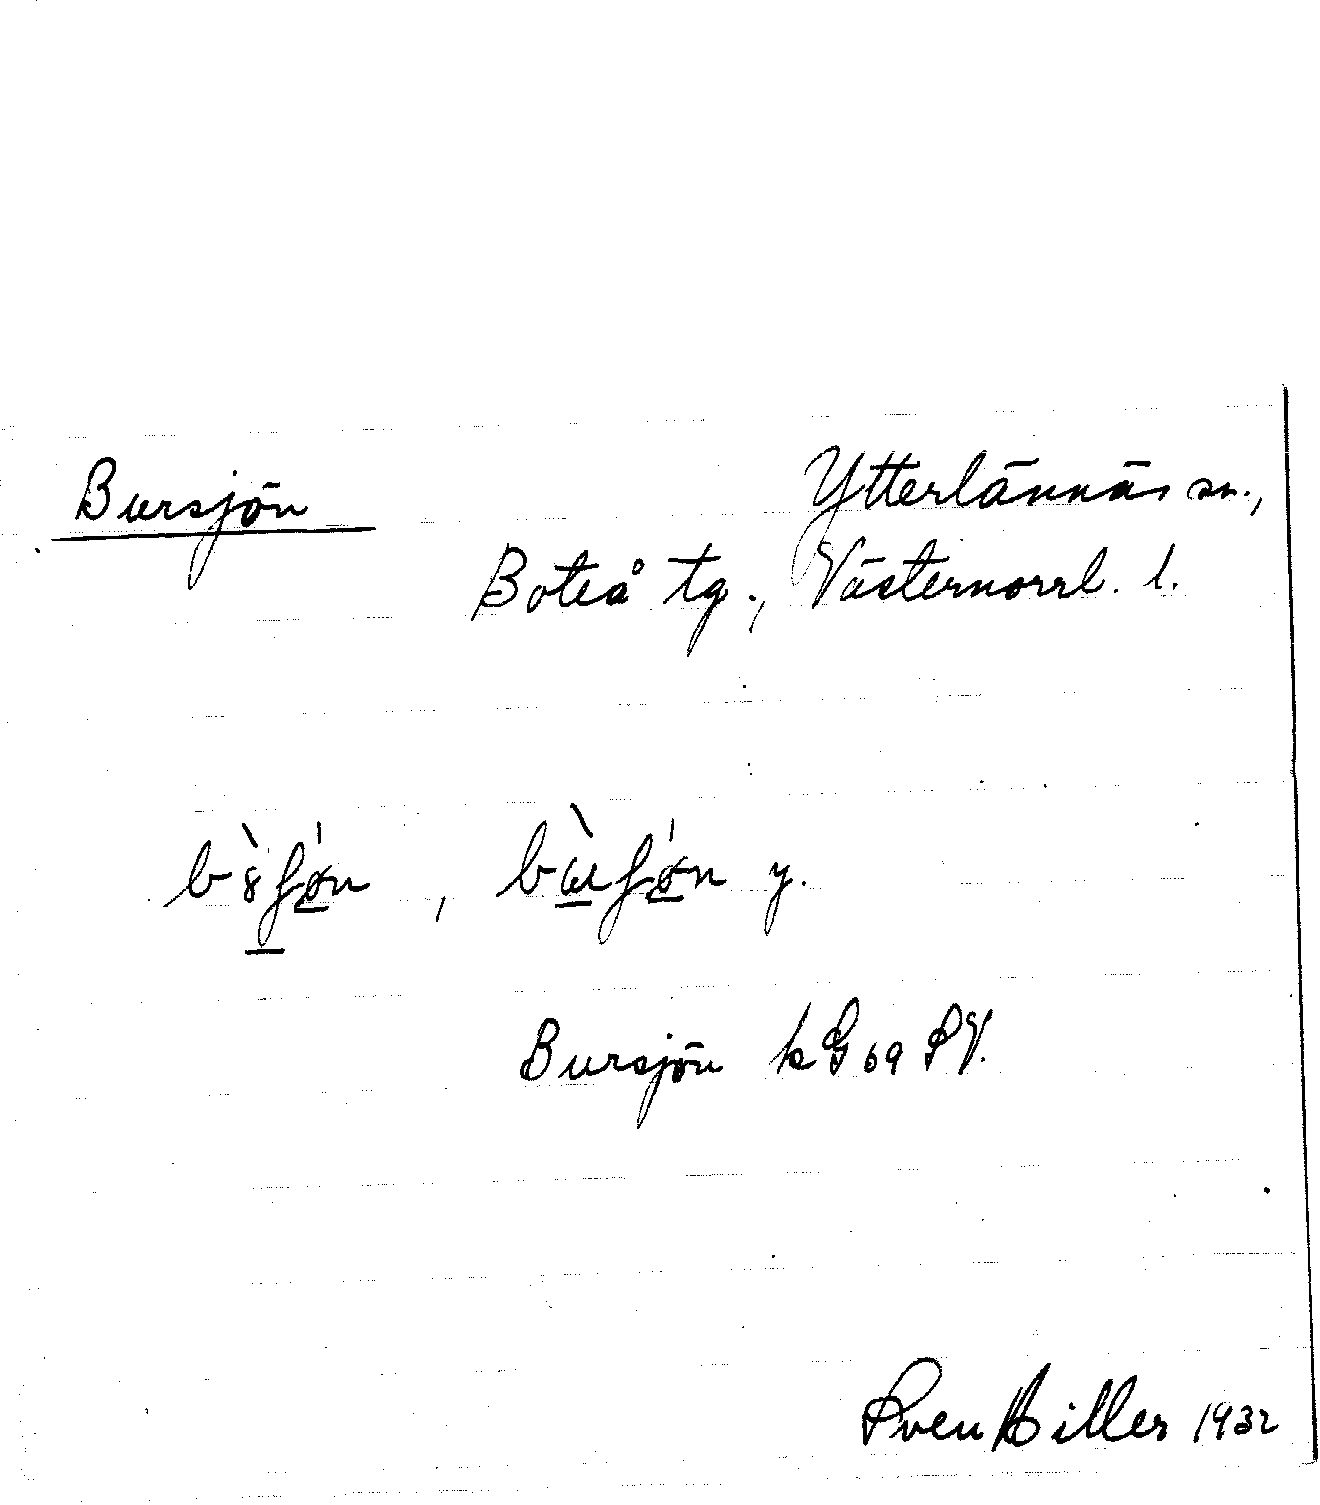 Bursjön Ytterlännäs sn.,
Boteå tg., Västernorrl. l.
y.
Bursjön k G 69 SV.
Sven Hiller 1932